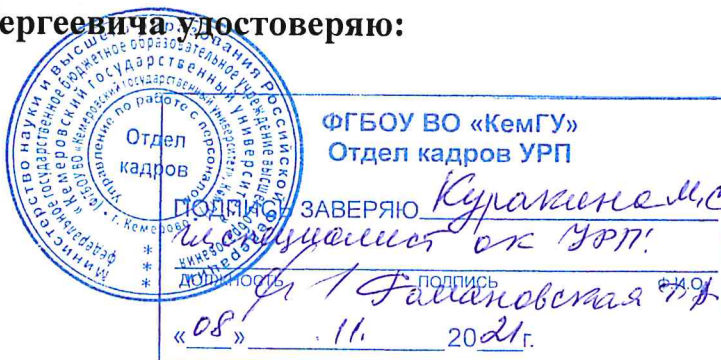 ергеевича удостоверяю:
Министерство науки и высшего образования Российской Федерации
федеральное государственное бюджетное образовательное учреждение высшего образования
«Кемеровский государственный университет»
(ФГБОУ ВО «Кемеровский государственный университет», КемГУ)
Управление по работе с персоналом
г. Кемерово
Отдел
кадров
* * *
ФГБОУ ВО «КемГУ»
Отдел кадров УРП
ПОДПИСЬ ЗАВЕРЯЮ Куракина М.С
гл. специалист ОК УРП
ДОЛЖНОСТЬ ПОДПИСЬ Ф.И.О.
«08» 11. 2021г.